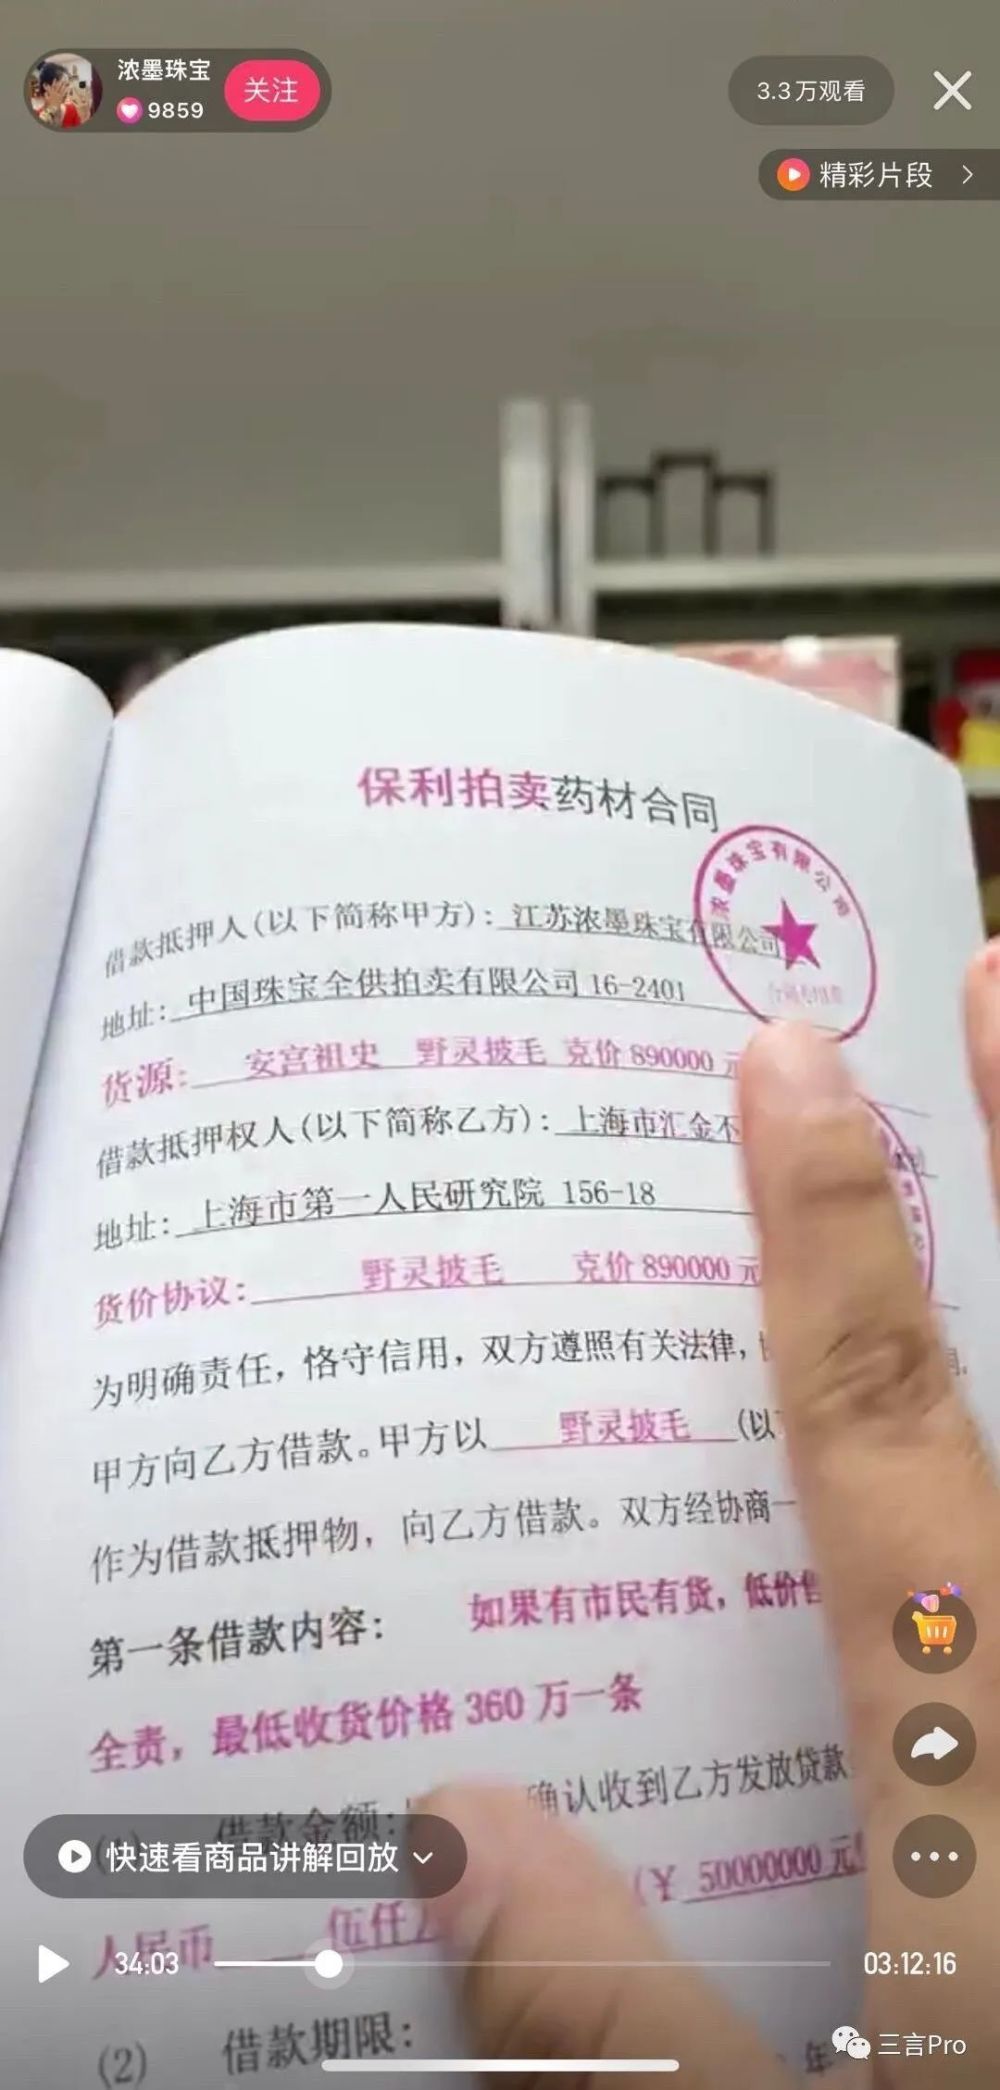 浓墨珠宝
9859
关注
3.3万观看
精彩片段
保利拍卖药材合同
浓墨珠宝有限公司
借款抵押人(以下简称甲方):江苏浓墨珠宝有限公司
地址:中国珠宝全供拍卖有限公司 16-2401
货源: 安宫祖史 野灵披毛 克价 890000 元
借款抵押权人(以下简称乙方):上海市汇金不
地址:上海市第一人民研究院 156-18
货价协议: 野灵披毛 克价 890000 元
为明确责任，恪守信用，双方遵照有关法律，
甲方向乙方借款。甲方以 野灵披毛 (以
作为借款抵押物，向乙方借款。双方经协商一
第一条借款内容: 如果有市民有货，低价售
全责，最低收货价格 360 万一条
借款金额: 确认收到乙方发放贷款
快速看商品讲解回放
人民币 伍仟 (¥ 50000000 元
34:03
03:12:16
(2) 借款期限: 年
三言Pro